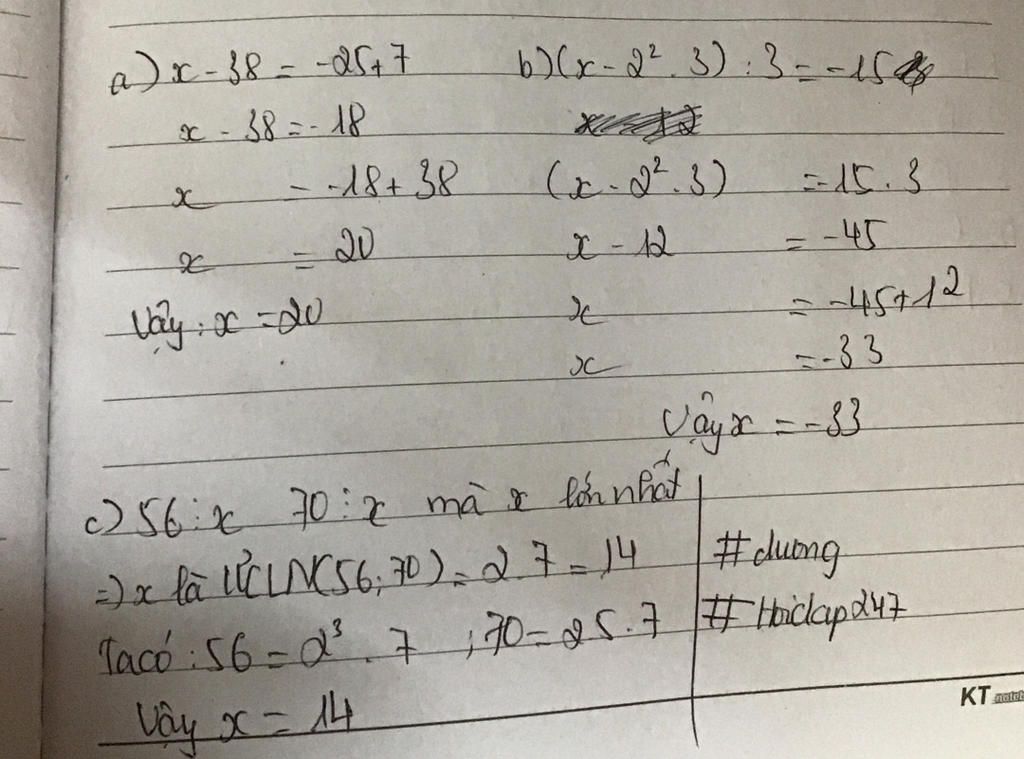 a) x - 38 = -25 + 7
x - 38 = -18
x = -18 + 38
x = 20
Vậy: x = 20
b) (x - 2² . 3) : 3 = -15
(x - 2² . 3) = -15 . 3
x - 12 = -45
x = -45 + 12
x = -33
Vậy x = -33
c) 56 ⋮ x 70 ⋮ x mà x lớn nhất
=> x là ƯCLN(56; 70) = 2.7 = 14
Ta có : 56 = 2³ . 7 ; 70 = 2.5.7
Vậy x = 14
#duong
#Hoidap247
KT